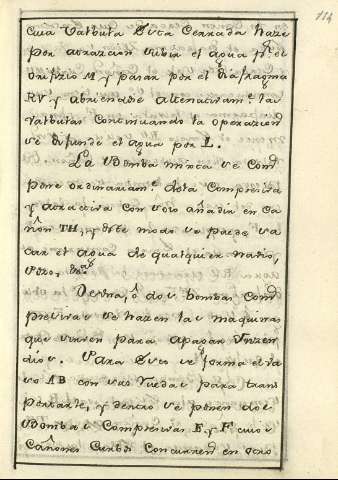 114
cuia Valbula Esta Cerrada haze
por atraczion subir el agua pr. el
orifizio M y pasar por el diafragma
RV y abriendose alternativamte. las
valbulas continuando la operazion
se difunde el agua por L.
La Bomba mixta se com
pone ordinariamte. dela Compresiva
y atractiva con solo añadir en ca
ñon TH, y de este modo se puede sa
car el agua de qualquier navio,
Pozo, &a.
De una, ô dos bombas Com
presivas se hazen las maquinas
que sirven para apagar Ynzen
dios. Para Esto se forma el va
so AB con sus Ruedas para trans
portarle, y dentro se ponen dos
Bombas Compresivas E, y F cuios
Cañones Curbos Concurren en otro